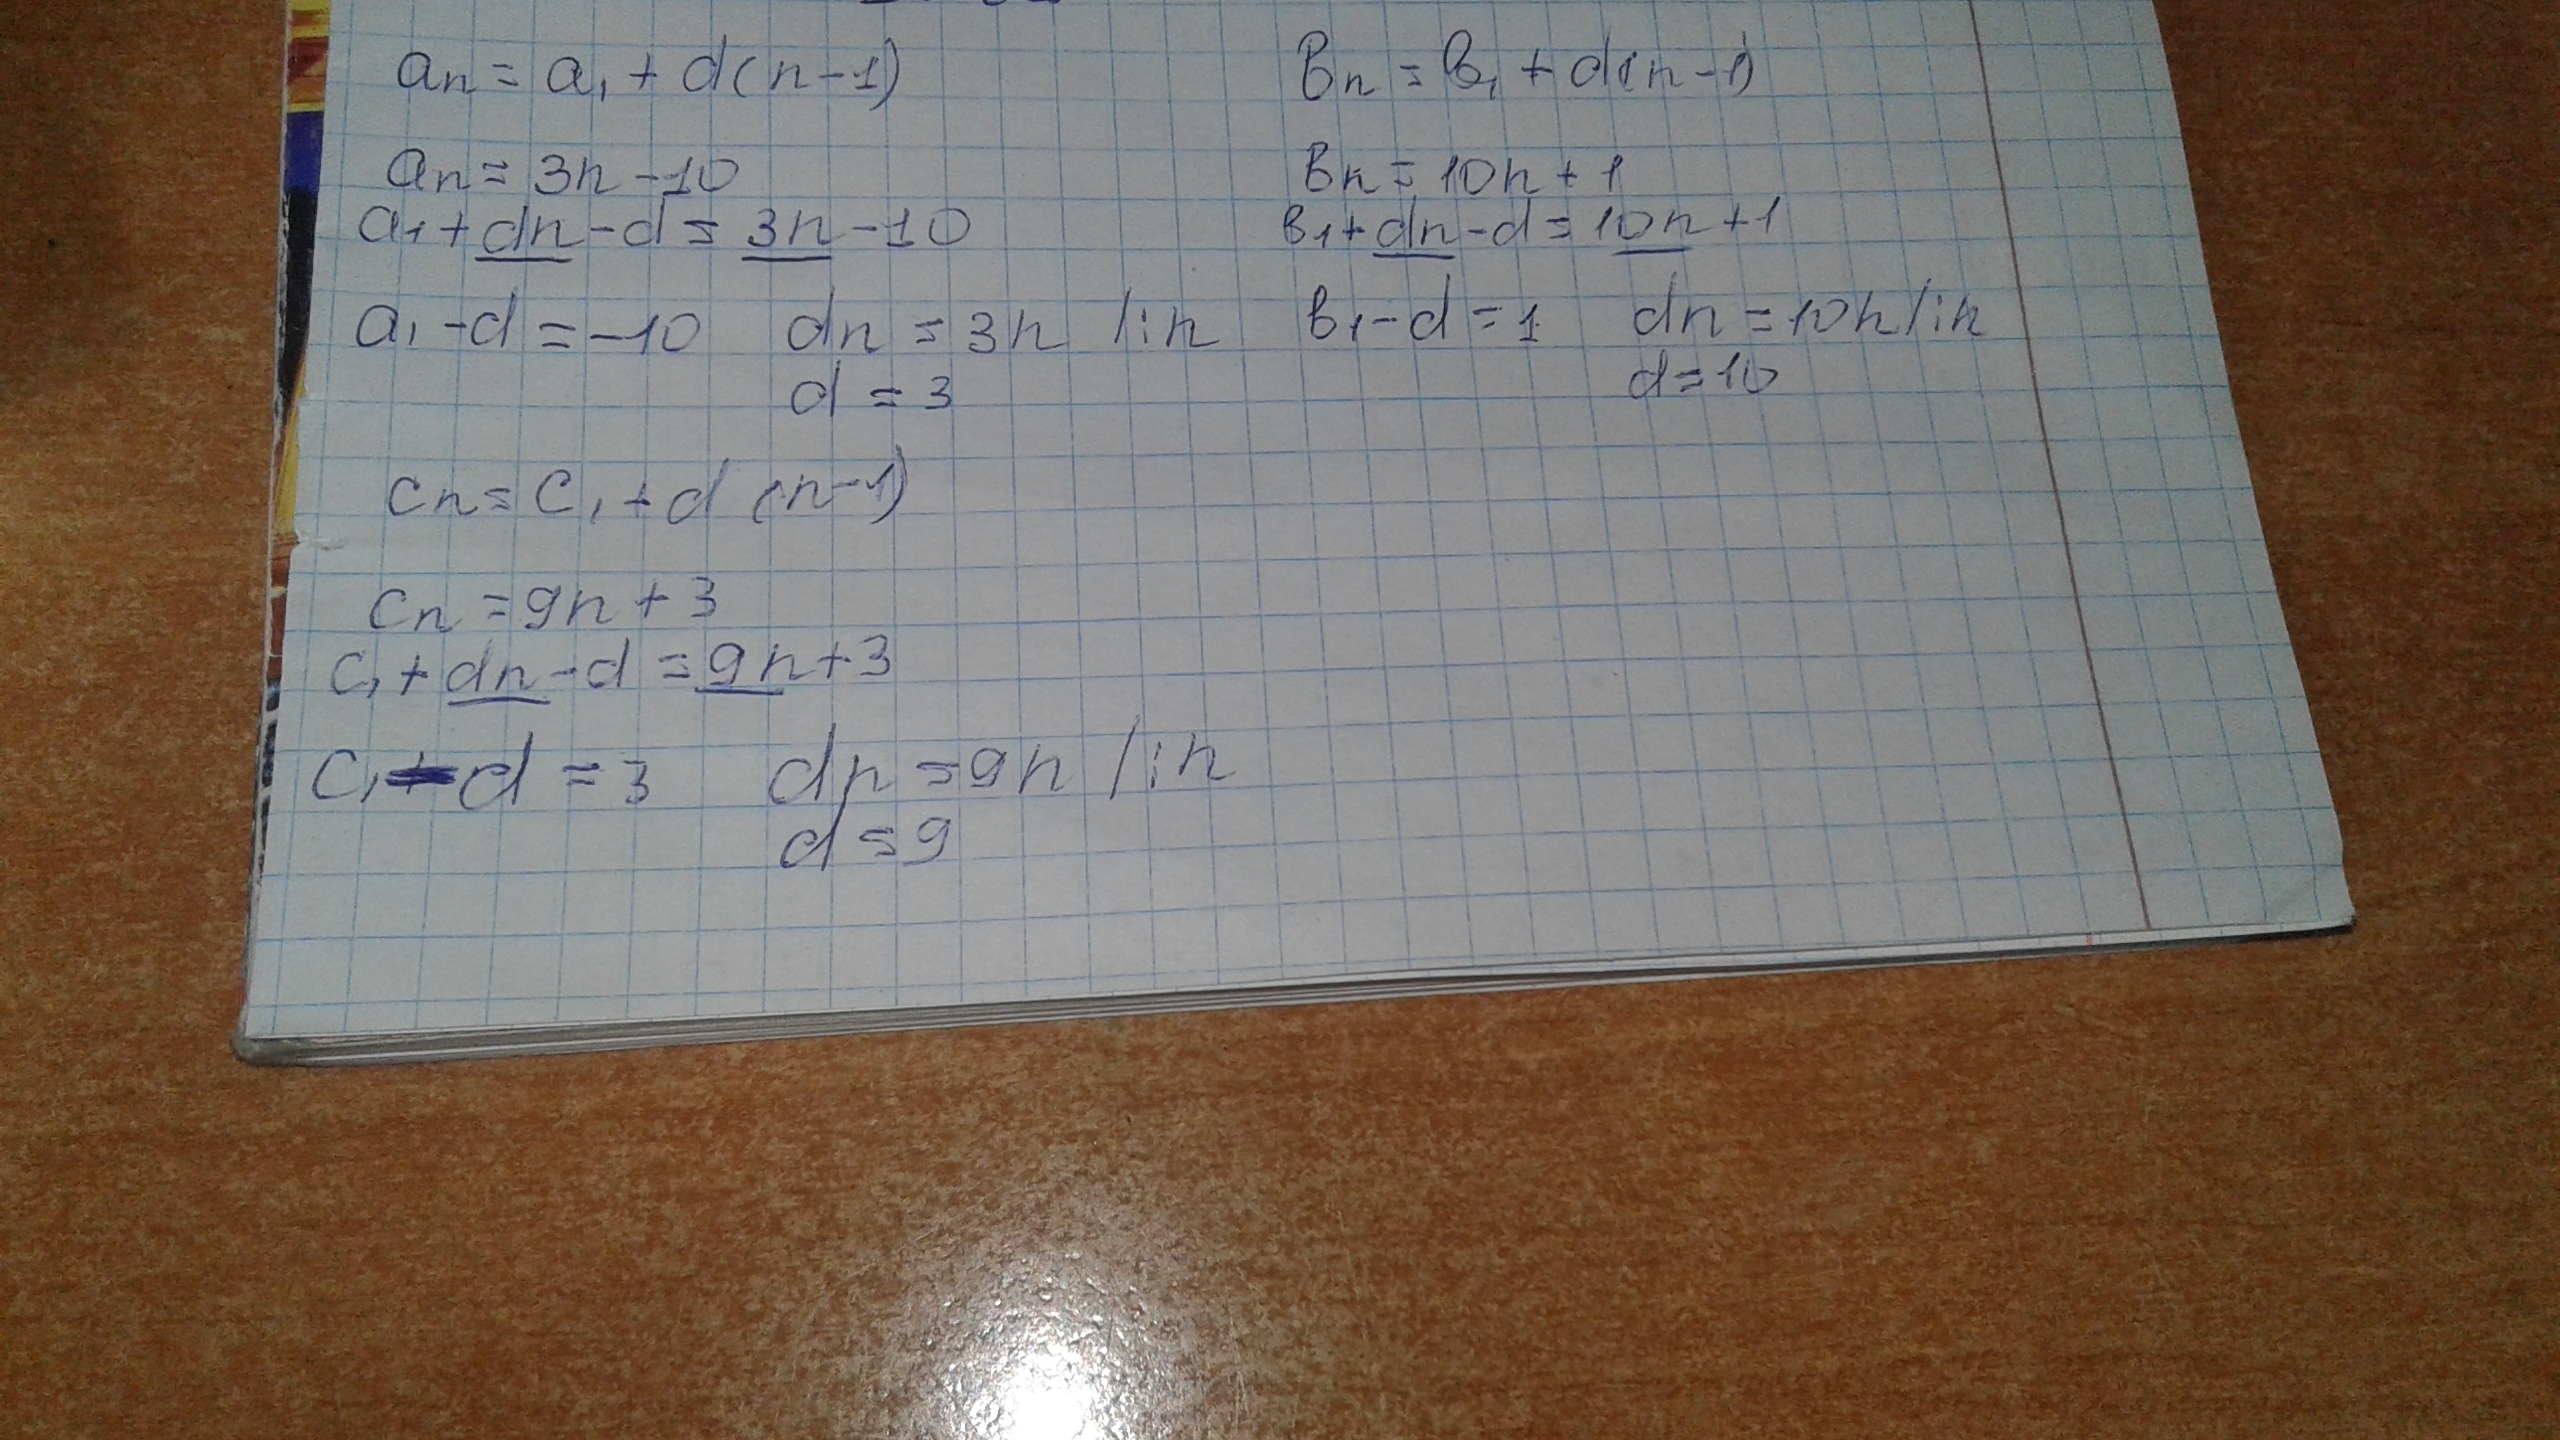 an = a1 + d(n-1)
an = 3n-10
a1 + dn - d = 3n - 10
a1 - d = -10 dn = 3n /:n
d = 3
вn = в1 + d(n-1)
вn = 10n + 1
в1 + dn - d = 10n + 1
в1 - d = 1 dn = 10n /:n
d = 10
cn = c1 + d (n-1)
cn = 9n + 3
c1 + dn - d = 9n + 3
c1 - d = 3 dn = 9n /:n
d = 9